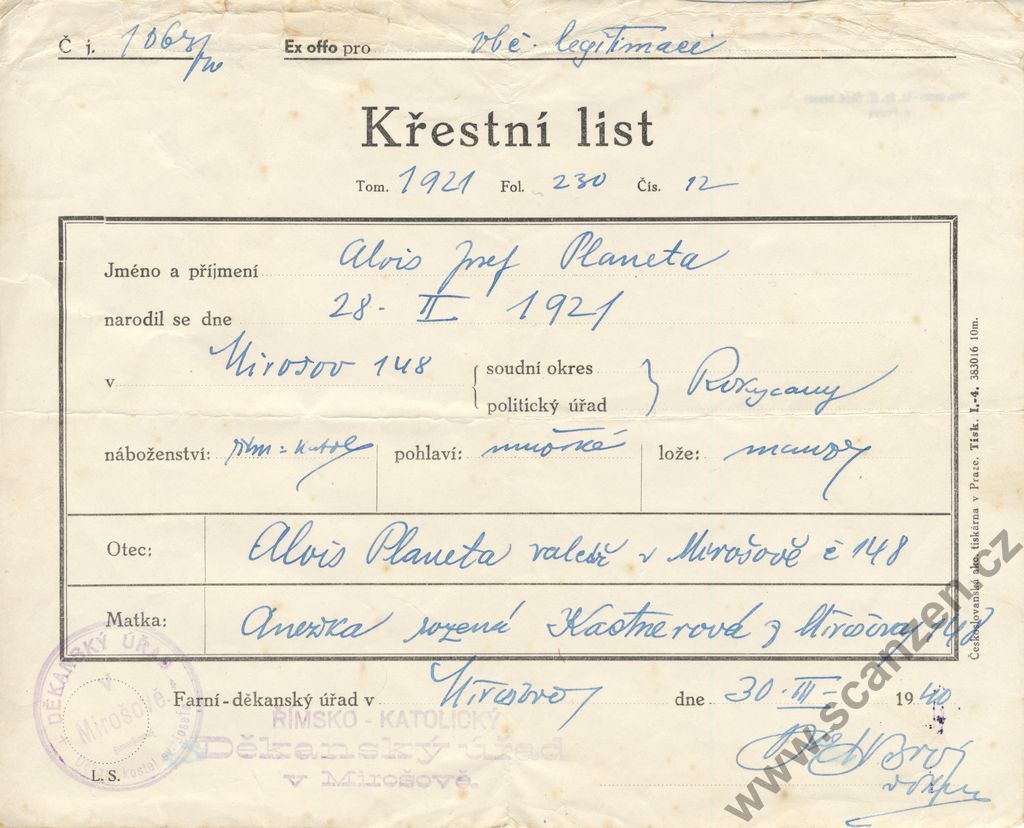 Č j. 1067/40 Ex offo pro obč. legitimaci
Křestní list
Tom. 1921 Fol. 230 Čís. 12
Jméno a příjmení Alois Josef Planeta
narodil se dne 28. II 1921
v Mirošov 148 soudní okres
politický úřad Rokycany
náboženství: řím=katol pohlaví: mužské lože: manž
Otec: Alois Planeta v Mirošově č 148
Matka: Anežka rozená Kastnerová z Mirošova 148
DĚKANSKÝ ÚŘAD
V
Mirošově
L. S.
Farní-děkanský úřad v Mirošově dne 30. III 1940
ŘÍMSKO - KATOLICKÝ
Děkanský úřad
v Mirošově.
Českoslovanská akc. tiskárna v Praze. Tisk. I.-4. 383016 10m.
www.scanzen.cz